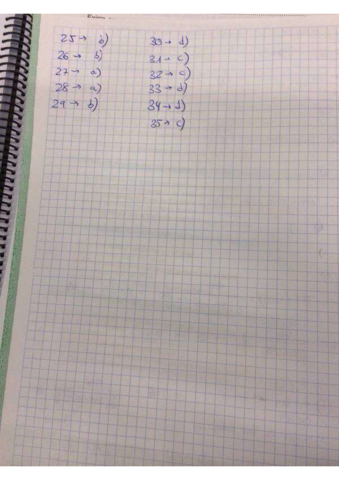 25 → b)
26 → b)
27 → a)
28 → a)
29 → b)
30 → d)
31 → c)
32 → c)
33 → d)
34 → d)
35 → c)